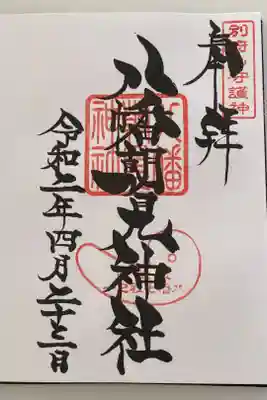 別府の守護神
奉拝
八幡朝見神社
令和二年四月二十三日